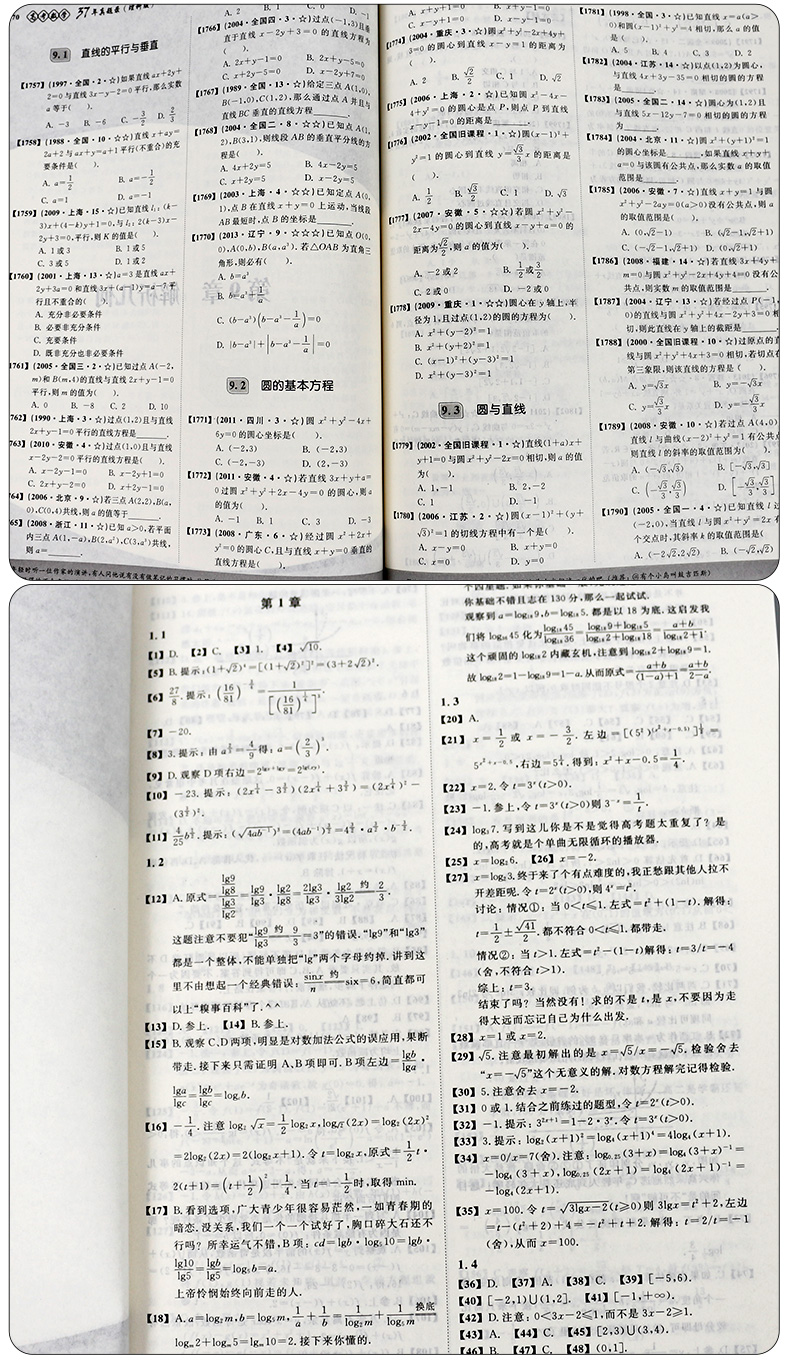 高考数学 37年真题最(理科版)
9.1 直线的平行与垂直
【1757】(1997·全国·2·☆)如果直线 ax+2y+
2=0与直线3x-y-2=0平行,那么实数
a等于( ).
A. -3 B. -6 C. -3/2 D. 2/3
【1758】(1988·全国·10·☆☆)直线 x+ay=
2a+2与ax+y=a+1平行(不重合)的充
要条件是( ).
A. a=1/2 B. a=-1/2
C. a=1 D. a=-1
【1759】(2009·上海·15·☆)已知直线 l₁:(k-
3)x+(4-k)y+1=0,与l₂:2(k-3)x-
2y+3=0,平行,则K的值是( ).
A. 1或3 B. 1或5
C. 3或5 D. 1或2
【1760】(2001·上海·13·☆)a=3是直线 ax+
2y+3a=0和直线3x+(a-1)y=a-7平
行且不重合的( ).
A. 充分非必要条件
B. 必要非充分条件
C. 充要条件
D. 既非充分也非必要条件
1761】(2005·全国三·2·☆)已知过点A(-2,
m)和B(m,4)的直线与直线2x+y-1=0
平行,则m的值为( ).
A. 0 B. -8 C. 2 D. 10
762】(1990·上海·3·☆)过点(1,2)且与直线
2x+y-1=0平行的直线方程是
763】(2010·安徽·4·☆)过点(1,0)且与直线
x-2y-2=0平行的直线方程是( ).
A. x-2y-1=0 B. x-2y+1=0
C. 2x+y-2=0 D. x+2y-1=0
764】(2006·北京·9·☆)若三点A(2,2),B(a,
0),C(0,4)共线,则a的值等于
65】(2008·浙江·11·☆)已知a>0,若平面
内三点A(1,-a),B(2,a²),C(3,a³)共线,
则a=
A. 2 B. 1 C. 0 D. -1
【1766】(2004·全国四·3·☆)过点(-1,3)且垂
直于直线x-2y+3=0的直线方程为
( ).
A. 2x+y-1=0 B. 2x+y-5=0
C. x+2y-5=0 D. x-2y+7=0
【1767】(1989·全国·13·☆)给定三点A(1,0),
B(-1,0),C(1,2),那么通过点A并且与
直线BC垂直的直线方程
【1768】(2004·全国二·8·☆☆)已知点A(1,
2),B(3,1),则线段AB的垂直平分线的方
程是( ).
A. 4x+2y=5 B. 4x-2y=5
C. x+2y=5 D. x-2y=5
【1769】(2003·上海·4·☆☆)已知定点A(0,
1),点B在直线x+y=0上运动,当线段
AB最短时,点B的坐标是
【1770】(2013·辽宁·9·☆☆☆)已知点O(0,
0),A(0,b),B(a,a³).若△OAB为直角三
角形,则必有( ).
A. b=a³
B. b=a³+1/a
C. (b-a³)(b-a³-1/a)=0
D. |b-a³|+|b-a³-1/a|=0
9.2 圆的基本方程
【1771】(2011·四川·3·☆)圆x²+y²-4x+
6y=0的圆心坐标是( ).
A. (-2,3) B. (-2,3)
C. (-2,-3) D. (2,-3)
【1772】(2011·安徽·4·☆)若直线3x+y+a=
0过圆x²+y²+2x-4y=0的圆心,则a
的值为( ).
A. -1 B. 1 C. 3 D. -3
【1773】(2008·广东·6·☆)经过圆x²+2x+
y²=0的圆心C,且与直线x+y=0垂直的
直线方程是( ).
C. x-y+1=0 D. x-y-1=0
【1774】(2004·重庆·3·☆)圆x²+y²-2x+4y+
3=0的圆心到直线x-y=1的距离为
( ).
A. 2 B. √2/2 C. 1 D. √2
【1775】(2006·上海·2·☆)已知圆x²-4x-
4+y²=0的圆心是点P,则点P到直线
x-y-1=0的距离是
【1776】(2002·全国旧课程·1·☆)圆(x-1)²+
y²=1的圆心到直线y=√3/3 x的距离是
( ).
A. 1/2 B. √3/2 C. 1 D. √3
【1777】(2007·安徽·5·☆☆)若圆x²+y²-
2x-4y=0的圆心到直线x-y+a=0的
距离为√2/2,则a的值为( ).
A. -2或2 B. 1/2或3/2
C. 2或0 D. -2或0
【1778】(2009·重庆·1·☆☆)圆心在y轴上,半
径为1,且过点(1,2)的圆的方程为( ).
A. x²+(y-2)²=1
B. x²+(y+2)²=1
C. (x-1)²+(y-3)²=1
D. x²+(y-3)²=1
9.3 圆与直线
【1779】(2002·全国旧课程·1·☆)直线(1+a)x+
y+1=0与圆x²+y²-2x=0相切,则a的值
为( ).
A. 1,-1 B. 2,-2
C. 1 D. -1
【1780】(2006·江苏·2·☆)圆(x-1)²+(y+
√3)²=1的切线方程中有一个是( ).
A. x-y=0 B. x+y=0
C. x=0 D. y=0
【1781】(1998·全国·3·☆)已知直线x=a(a>
0)和圆(x-1)²+y²=4相切,那么a的值
是( ).
A. 5 B. 4 C. 3 D. 2
【1782】(2004·江苏·14·☆)以点(1,2)为圆心,
与直线4x+3y-35=0相切的圆的方程
是
【1783】(2005·全国二·14·☆)圆心为(1,2)且
与直线5x-12y-7=0相切的圆的方程
为
【1784】(2004·北京·11·☆)圆x²+(y+1)²=1
的圆心坐标是 ,如果直线x+y+
a=0与该圆有公共点,那么实数a的取值
范围是
【1785】(2006·安徽·7·☆)直线x+y=1与圆
x²+y²-2ay=0(a>0)没有公共点,则a
的取值范围是( ).
A. (0,√2-1) B. (√2-1,√2+1)
C. (-√2-1,√2+1) D. (0,√2+1)
【1786】(2008·福建·14·☆)若直线3x+4y+
m=0与圆x²+y²-2x+4y+4=0没有公
共点,则实数m的取值范围是
【1787】(2004·辽宁·13·☆)若经过点P(-1,
0)的直线与圆x²+y²+4x-2y+3=0相
切,则此直线在y轴上的截距是
【1788】(2000·全国旧课程·10·☆)过原点的直
线与圆x²+y²+4x+3=0相切,若切点在
第三象限,则该直线的方程是( ).
A. y=√3x B. y=-√3x
C. y=√3/3 x D. y=-√3/3 x
【1789】(2008·安徽·10·☆)若过点A(4,0)
直线l与曲线(x-2)²+y²=1有公共点
则直线l的斜率的取值范围为( ).
A. (-√3,√3) B. [-√3,√3]
C. (-√3/3,√3/3) D. [-√3/3,√3/3]
【1790】(2005·全国一·4·☆)已知直线l过点
(-2,0),当直线l与圆x²+y²=2x有
个交点时,其斜率k的取值范围是(
A. (-2√2,2√2) B. (-√2,√2)
第1章
1.1
【1】D. 【2】C. 【3】1. 【4】√10.
【5】B.提示:(1+√2)⁴=[(1+√2)²]²=(3+2√2)².
【6】27/8.提示:(16/81)^(-3/4)=1/[(16/81)^(1/4)]³.
【7】-20.
【8】3.提示:由a^(2/3)=4/9得:a=(2/3)³.
【9】D.观察D项右边=2^(lgx+lgy)=2^(lg(xy)).
【10】-23.提示:(2x^(1/4)-3^(3/2))(2x^(1/4)+3^(3/2))=(2x^(1/4))²-
(3^(3/2))².
1.2
【12】A.原式=(lg9/lg8)/(lg3/lg2)=lg9/lg3·lg2/lg8=2lg3/lg3·lg2/3lg2 约 2/3.
这题注意不要犯“lg9/lg3 约 9/3=3”的错误.“lg9”和“lg3”
都是一个整体,不能单独把“lg”两个字母约掉.讲到这
里不由想起一个经典错误:sinx/n 约 six=6,简直都可
以上“糗事百科”了.^ ^
【13】D.参上. 【14】B.参上.
【15】B.观察C、D两项,明显是对数加法公式的误应用,果断
带走.接下来只需证明A、B项即可.B项左边=lgb/lga·
lga/lgc=lgb/lgc=log_c b.
【16】-1/4.注意log₂√x=1/2 log₂x,log_√2(2x)=log₂(2x)²
=2log₂(2x)=2(log₂x+1).令t=log₂x,原式=1/2 t·
2(t+1)=(t+1/2)²-1/4.当t=-1/2时,取得min.
【17】B.看到选项,广大青少年很容易茫然,一如青春期的
暗恋.没关系,我们一个一个试好了,胸口碎大石还不
行吗?所幸运气不错,B项:cd=lgb·log₅10=lgb·
lg10/lg5=lgb/lg5=log₅b=a.
上帝怜悯始终向前走的人.
【18】A.a=log₂m,b=log₅m,1/a+1/b=1/log₂m+1/log₅m 换底
log_m2+log_m5=lg_m10=2.接下来你懂的.
你基础不错且志在130分,那么一起试试.
观察到a=log₁₈9,b=log₁₈5.都是以18为底.这启发我
们将log₃₆45化为log₁₈45/log₁₈36=(log₁₈9+log₁₈5)/(log₁₈2+log₁₈18)=(a+b)/(log₁₈2+1).
这个顽固的log₁₈2内藏玄机,注意到log₁₈2+log₁₈9=1.
故log₁₈2=1-log₁₈9=1-a.从而原式=(a+b)/((1-a)+1)=(a+b)/(2-a).
1.3
【20】A.
【21】x=1/2或x=-3/2.左边=[(5²)^(x²+x-0.5)]^(1/2)=
5^(x²+x-0.5),右边=5^(1/4).得到:x²+x-0.5=1/4.
【22】x=2.令t=3ˣ(t>0).
【23】-1.参上,令t=3ˣ(t>0)则3⁻ˣ=1/t.
【24】log₃7.写到这儿你是不是觉得高考题太重复了?是
的,高考就是个单曲无限循环的播放器.
【25】x=log₂6. 【26】x=-2.
【27】x=log₂3.终于来了个有点难度的,我正愁跟其他人拉不
开差距呢.令t=2ˣ(t>0),则4ˣ=t².
讨论:情况①:当0<t≤1.左式=t²+(1-t).解得:
t=1/2±√41/2.都不符合0<t≤1.都带走.
情况②:当t>1.左式=t²-(1-t)解得:t=3/t=-4
(舍,不符合t>1).
综上:t=3.
结束了吗?当然没有!求的不是t,是x,不要因为走
得太远而忘记自己为什么出发.
【28】x=1或x=2.
【29】√5.注意最初解出的是x=√5/x=-√5.检验舍去
“x=-√5”这个无意义的解.对数方程解完记得检验.
【30】5.注意舍去x=-2.
【31】0或1.结合之前练过的题型,令t=2ˣ(t>0).
【32】-1.提示:3²ˣ⁺¹=1-2·3ˣ.令t=3ˣ(t>0).
【33】3.提示:log₂(x+1)²=log₄(x+1)⁴=4log₄(x+1).
【34】x=0/x=7(舍).注意:log₀.₂₅(3+x)=log₄(3+x)⁻¹=
-log₄(3+x),log₀.₂₅(2x+1)=log₄(2x+1)⁻¹=
-log₄(2x+1).
【35】x=100.令t=√(3lgx-2)(t≥0)则3lgx=t²+2,左边
=t-(t²+2)+4=-t²+t+2.解得:t=2/t=-1
(舍),从而x=100.
1.4
【36】D. 【37】A. 【38】C. 【39】[-5,6).
【40】[-2,1)∪(1,2]. 【41】[-1,+∞).
【42】D.注意:0<3x-2≤1,而不是3x-2≥1.
【43】A. 【44】C. 【45】[2,3)∪(3,4).
【46】B. 【47】C. 【48】(0,1].